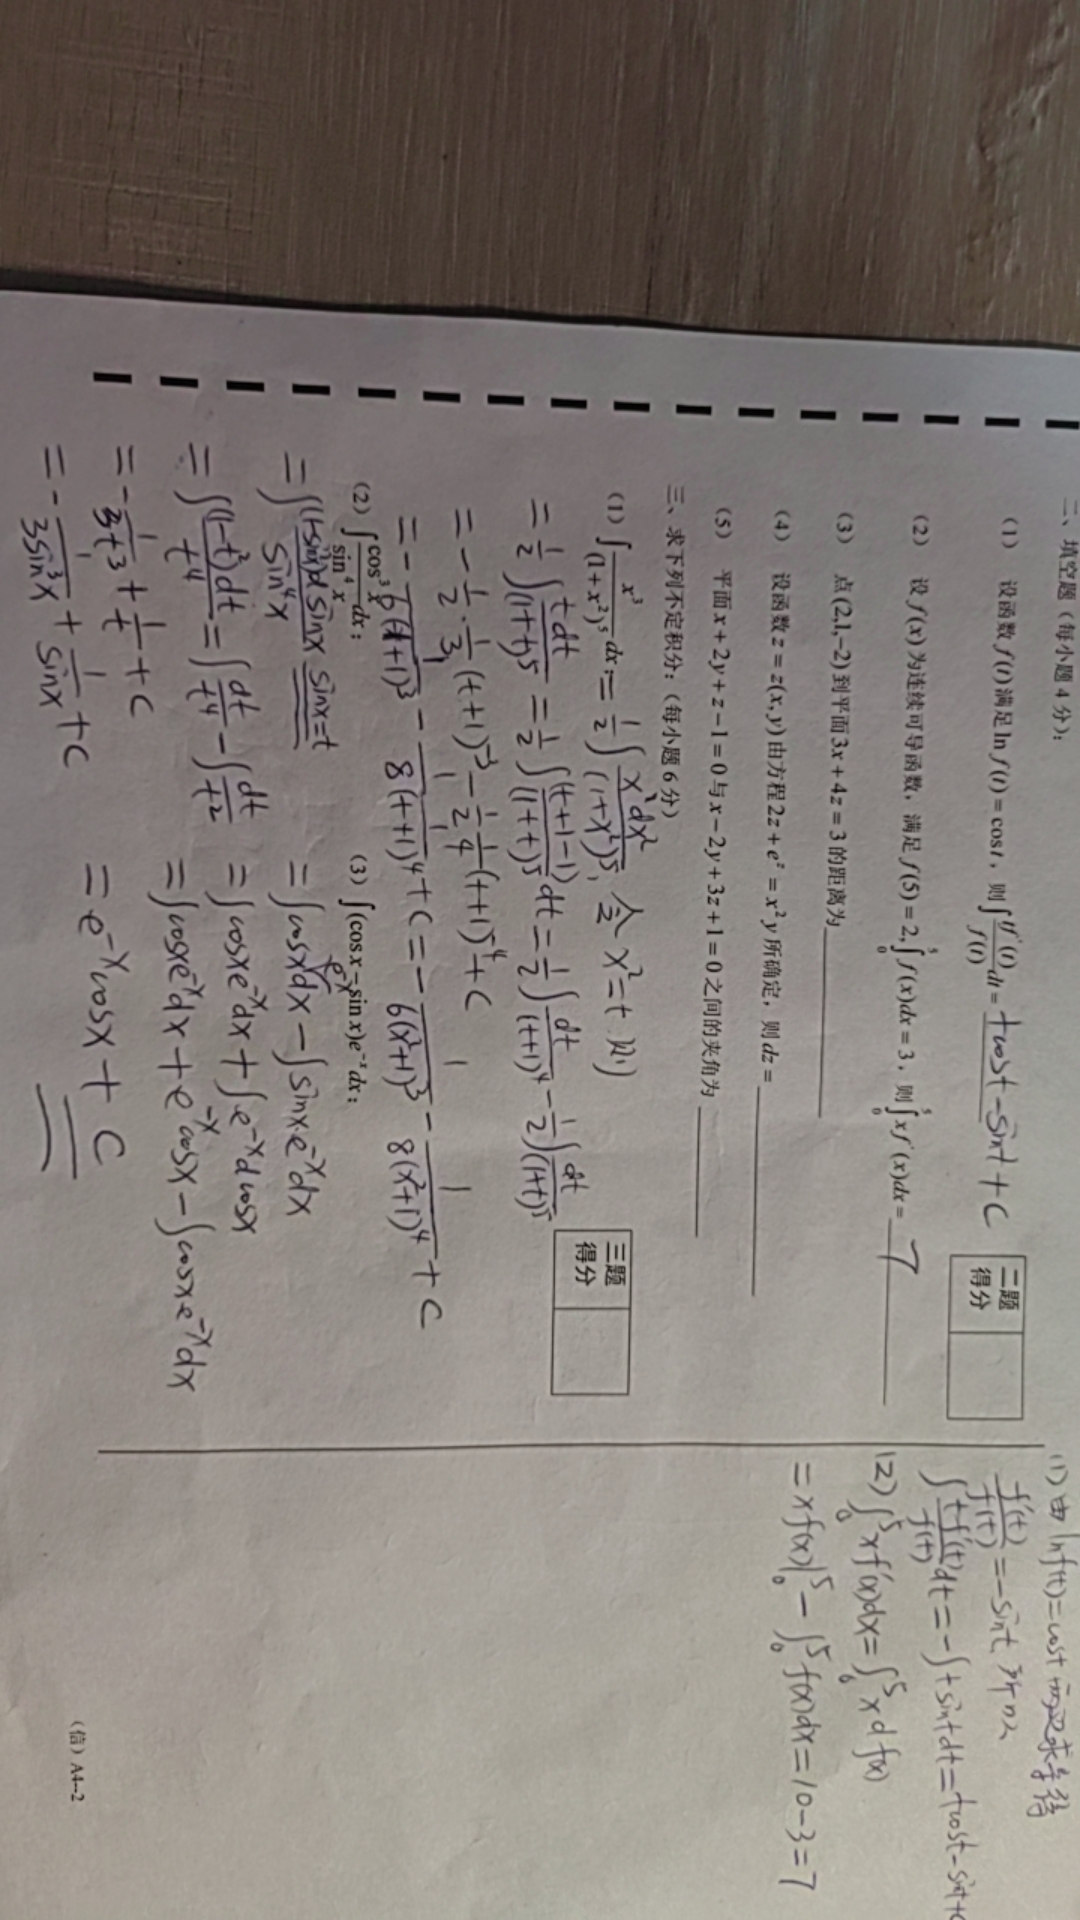 二、填空题（每小题 4 分）：
(1) 设函数 f(t) 满足 ln f(t) = cos t，则 ∫ tf'(t)/f(t) dt = tcost-sint+C
(2) 设 f(x) 为连续可导函数，满足 f(5) = 2, ∫₀⁵ f(x)dx = 3，则 ∫₀⁵ xf'(x)dx = 7
(3) 点 (2,1,-2) 到平面 3x + 4z = 3 的距离为
(4) 设函数 z = z(x, y) 由方程 2z + e^z = x²y 所确定，则 dz =
(5) 平面 x + 2y + z - 1 = 0 与 x - 2y + 3z + 1 = 0 之间的夹角为
二题
得分
三、求下列不定积分：（每小题 6 分）
三题
得分
(1) ∫ x³/(1+x²)⁵ dx; = 1/2 ∫ x²dx²/(1+x²)⁵, 令 x²=t 则
= 1/2 ∫ tdt/(1+t)⁵ = 1/2 ∫ (t+1-1)/(1+t)⁵ dt = 1/2 ∫ dt/(t+1)⁴ - 1/2 ∫ dt/(1+t)⁵
= - 1/2 · 1/3 (t+1)⁻³ - 1/2 · 1/4 (t+1)⁻⁴ + C
= - 1/6(t+1)³ - 1/8(t+1)⁴ + C = - 1/6(x²+1)³ - 1/8(x²+1)⁴ + C
(2) ∫ cos³x/sin⁴x dx;
= ∫ (1-sin²x)dsinx/sin⁴x sinx=t
= ∫ (1-t²)dt/t⁴ = ∫ dt/t⁴ - ∫ dt/t²
= - 1/3t³ + 1/t + C
= - 1/3sin³x + 1/sinx + C
(3) ∫(cos x - sin x)e⁻ˣdx;
= ∫cosxdx - ∫sinx·e⁻ˣdx
= ∫cosxe⁻ˣdx + ∫e⁻ˣdcosx
= ∫cosxe⁻ˣdx + e⁻ˣcosx - ∫cosxe⁻ˣdx
= e⁻ˣcosx + C
(1) 由 lnf(t)=cost 求导得
f'(t)/f(t) = -sint, 所以
∫ tf'(t)/f(t) dt = -∫tsintdt = tcost-sint+C
(2) ∫₀⁵ xf'(x)dx = ∫₀⁵ xdf(x)
= xf(x)|₀⁵ - ∫₀⁵ f(x)dx = 10-3=7
（信）A4--2